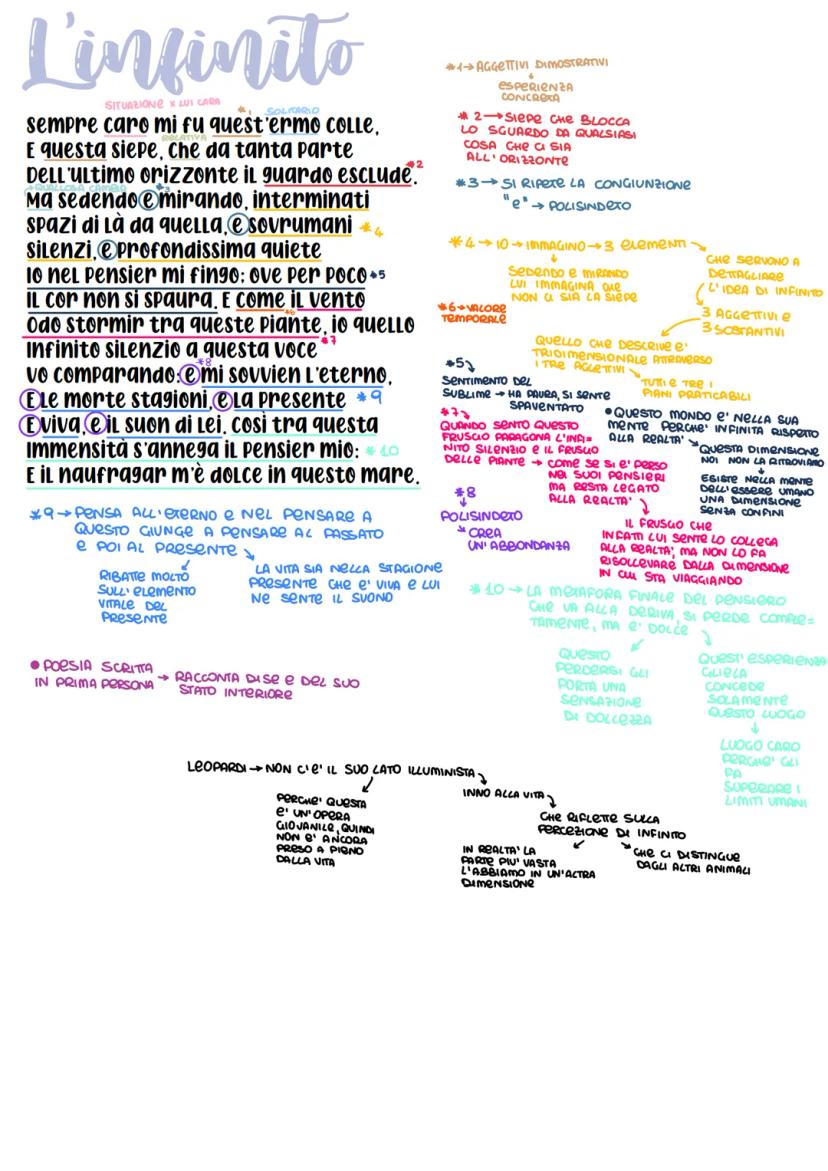 L'infinito
SITUAZIONE X LUI CARA
*1 SOLITARIO
Sempre caro mi fu quest'ermo colle,
RELATIVA
E questa siepe, che da tanta parte
Dell'ultimo orizzonte il guardo esclude. *2
QUALCOSA CAMBIA *3
Ma sedendo e mirando, interminati
Spazi di là da quella, e sovrumani *4
Silenzi, e profondissima quiete
Io nel pensier mi fingo; ove per poco *5
Il cor non si spaura. E come il vento
*6
Odo stormir tra queste piante, io quello
Infinito silenzio a questa voce *7
*8
Vo comparando: e mi sovvien l'eterno,
E le morte stagioni, e la presente *9
E viva, e il suon di lei. Così tra questa
Immensità s'annega il pensier mio: *10
E il naufragar m'è dolce in questo mare.
*1→AGGETTIVI DIMOSTRATIVI
ESPERIENZA
CONCRETA
*2→SIEPE CHE BLOCCA
LO SGUARDO DA QUALSIASI
COSA CHE CI SIA
ALL'ORIZZONTE
*3→SI RIPETE LA CONGIUNZIONE
"e"→POLISINDETO
*4→IO→IMMAGINO→3 ELEMENTI
SEDENDO E MIRANDO
LUI IMMAGINA CHE
NON CI SIA LA SIEPE
CHE SERVONO A
DETTAGLIARE
L'IDEA DI INFINITO
3 AGGETTIVI E
3 SOSTANTIVI
QUELLO CHE DESCRIVE E'
TRIDIMENSIONALE ATTRAVERSO
I TRE AGGETTIVI
TUTTI E TRE I
PIANI PRATICABILI
*6→VALORE
TEMPORALE
*5
SENTIMENTO DEL
SUBLIME→HA PAURA, SI SENTE
SPAVENTATO
•QUESTO MONDO E' NELLA SUA
MENTE PERCHE' INFINITA RISPETTO
ALLA REALTA'
QUESTA DIMENSIONE
NOI NON LA RITROVIAMO
ESISTE NELLA MENTE
DELL'ESSERE UMANO
UNA DIMENSIONE
SENZA CONFINI
*7
QUANDO SENTO QUESTO
FRUSCIO PARAGONA L'INFI=
NITO SILENZIO E IL FRUSCIO
DELLE PIANTE→COME SE SI E' PERSO
NEI SUOI PENSIERI
MA RESTA LEGATO
ALLA REALTA'
IL FRUSCIO CHE
INFATTI LUI SENTE LO COLLEGA
ALLA REALTA', MA NON LO FA
RISOLLEVARE DALLA DIMENSIONE
IN CUI STA VIAGGIANDO
*8
POLISINDETO
CREA
UN'ABBONDANZA
*9→PENSA ALL'ETERNO E NEL PENSARE A
QUESTO GIUNGE A PENSARE AL PASSATO
E POI AL PRESENTE
RIBATTE MOLTO
SULL'ELEMENTO
VITALE DEL
PRESENTE
LA VITA SIA NELLA STAGIONE
PRESENTE CHE E' VIVA E LUI
NE SENTE IL SUONO
*10→LA METAFORA FINALE DEL PENSIERO
CHE VA ALLA DERIVA, SI PERDE COMPLE=
TAMENTE, MA E' DOLCE
QUESTO
PERDERSI GLI
PORTA UNA
SENSAZIONE
DI DOLCEZZA
QUEST'ESPERIENZA
GLIELA
CONCEDE
SOLAMENTE
QUESTO LUOGO
LUOGO CARO
PERCHE' GLI
FA
SUPERARE I
LIMITI UMANI
•POESIA SCRITTA
IN PRIMA PERSONA→RACCONTA DI SE E DEL SUO
STATO INTERIORE
LEOPARDI→NON C'E' IL SUO LATO ILLUMINISTA
PERCHE' QUESTA
E' UN'OPERA
GIOVANILE, QUINDI
NON E' ANCORA
PRESO A PIENO
DALLA VITA
INNO ALLA VITA
CHE RIFLETTE SULLA
PERCEZIONE DI INFINITO
IN REALTA' LA
PARTE PIU' VASTA
L'ABBIAMO IN UN'ALTRA
DIMENSIONE
CHE CI DISTINGUE
DAGLI ALTRI ANIMALI